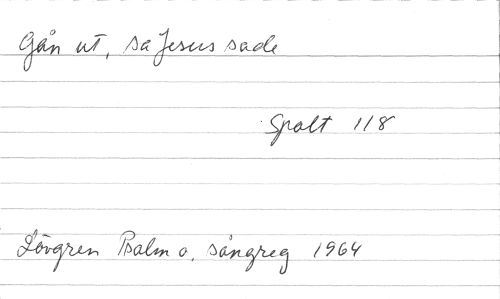 Gån ut, sa Jesus sade
Spalt 118
Lövgren Psalm o, sångreg 1964